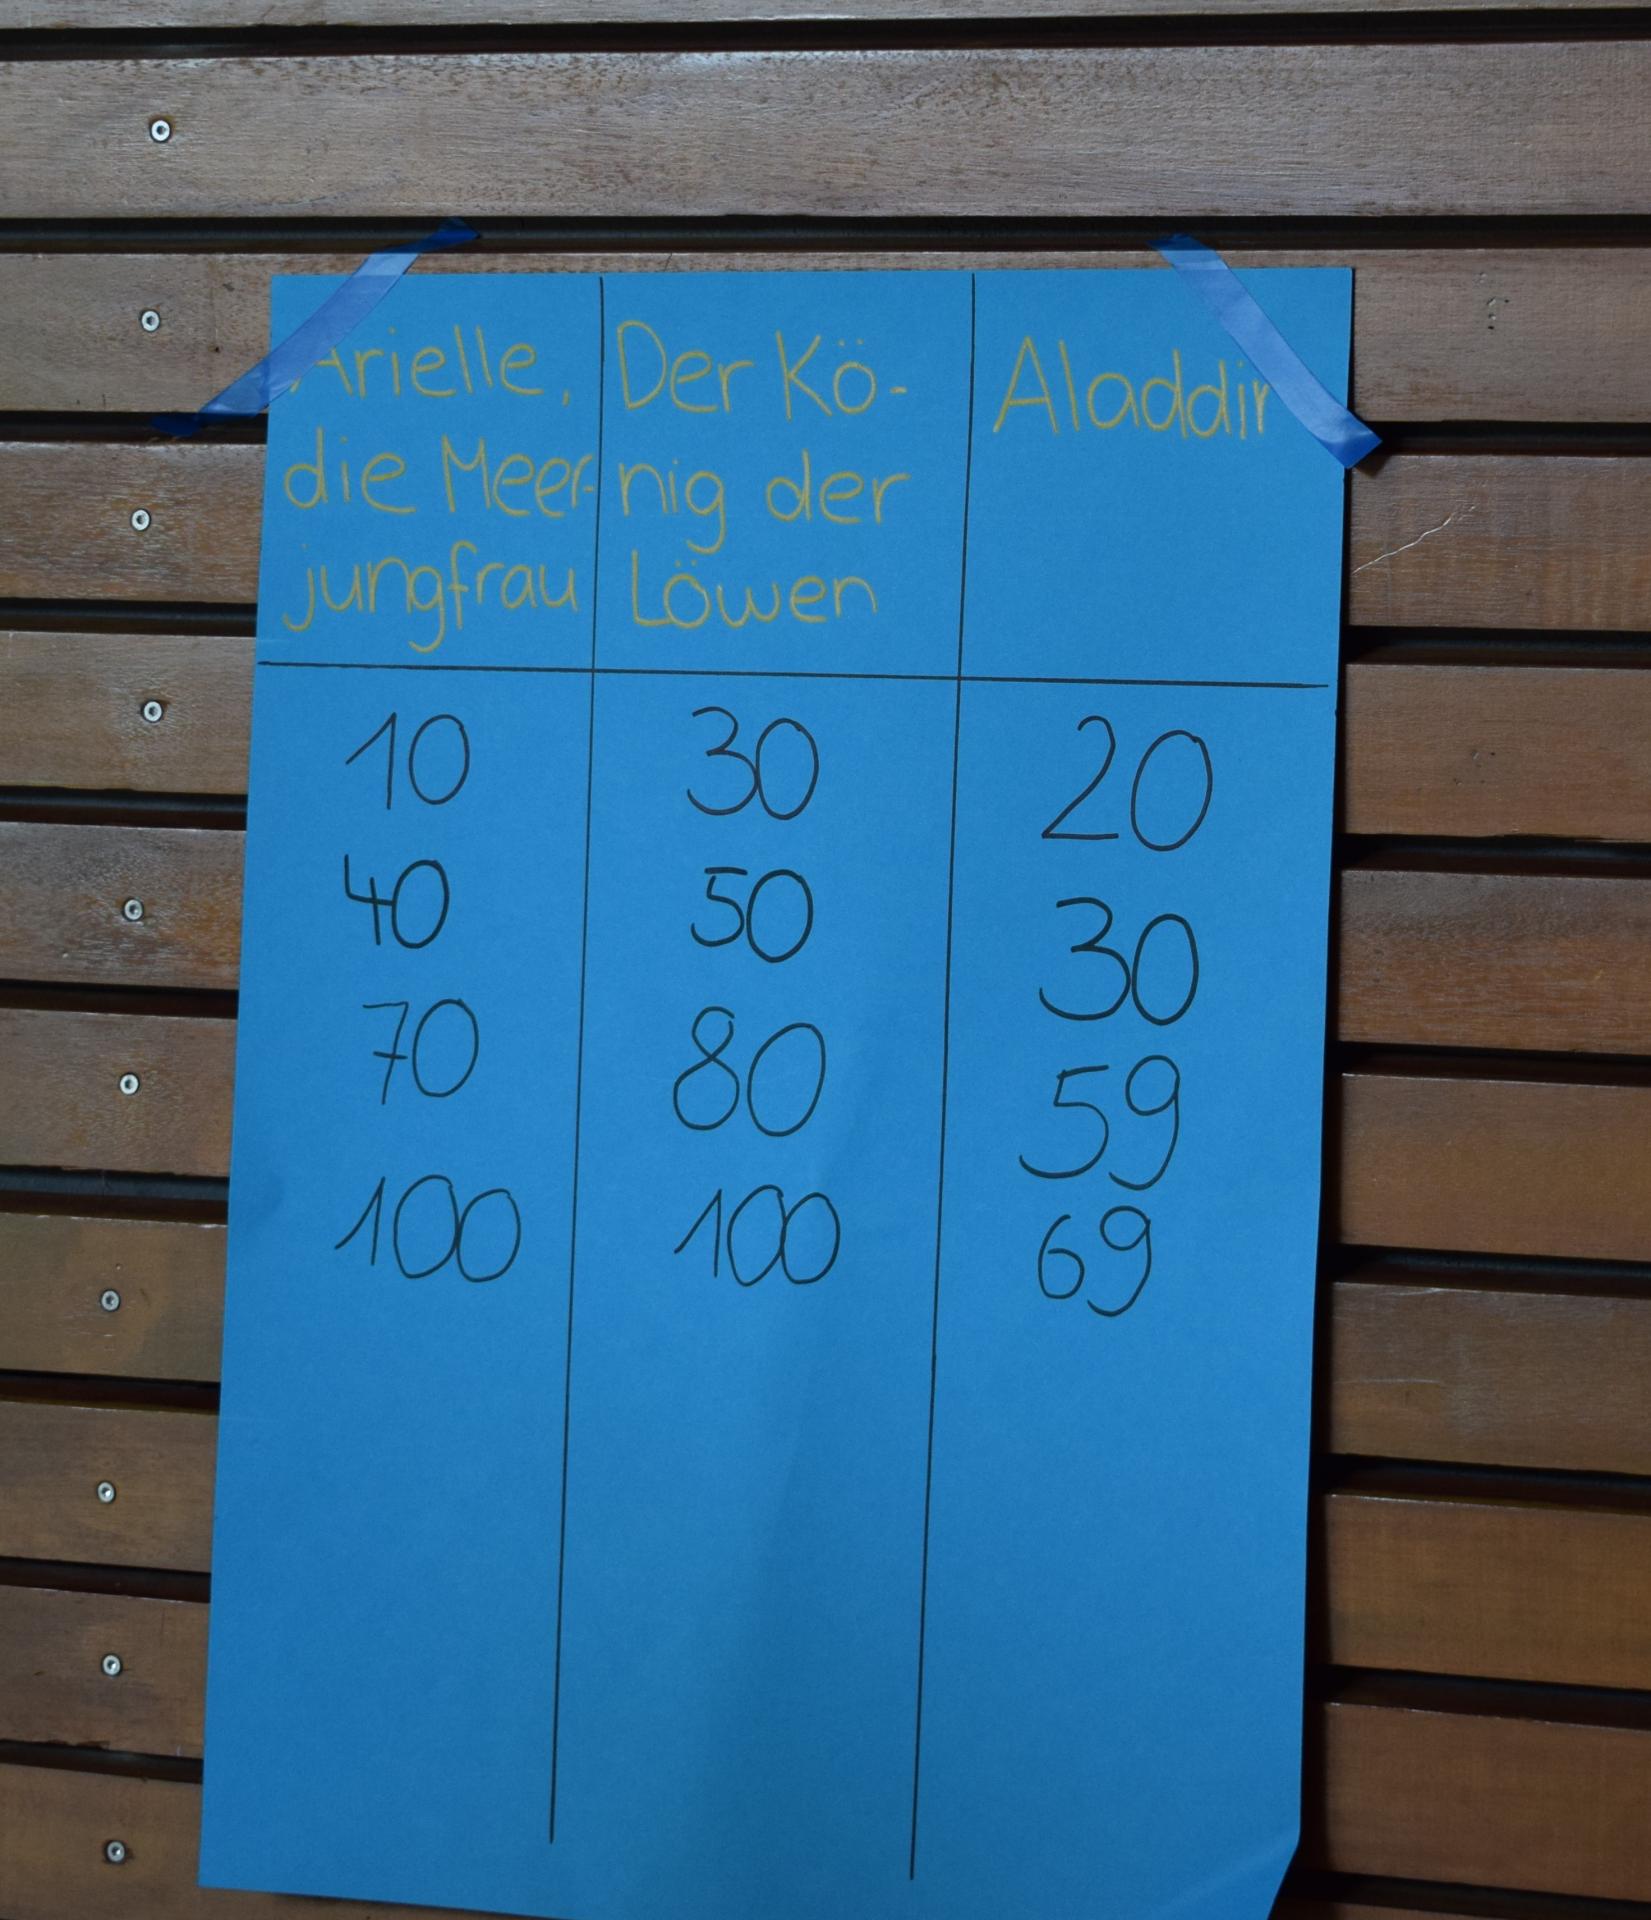 Arielle,
die Meer-
jungfrau
Der Kö-
nig der
Löwen
Aladdin
10 30 20
40 50 30
70 80 59
100 100 69